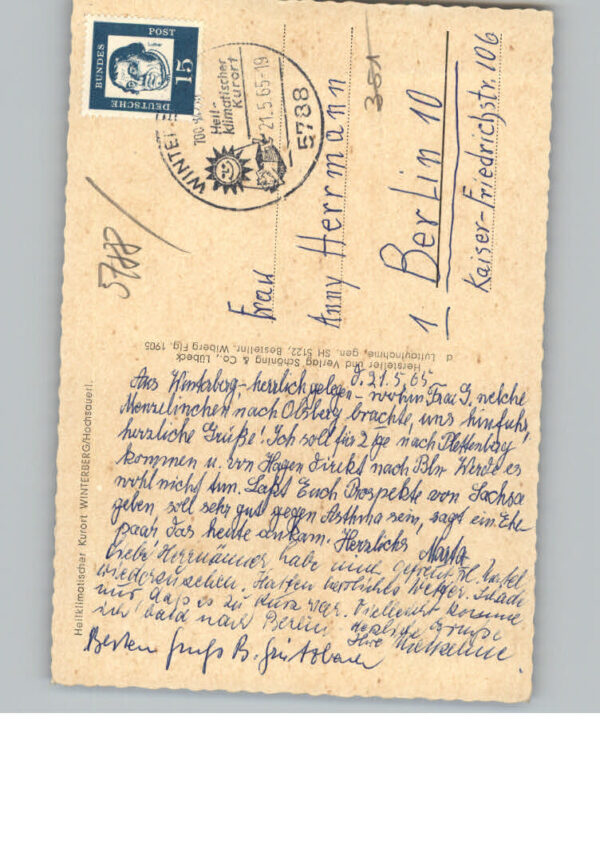 BUNDES
POST
Luther
15
DEUTSCHE
Heil-
klimatischer
Kurort
21.5.65-19
5788
WINTE
700
5788
351
Frau
Anny Herrmann
1 Berlin 10
Kaiser-Friedrichstr. 106
Heilklimatischer Kurort WINTERBERG/Hochsauerl.
Hersteller und Verlag Schöning & Co., Lübeck
d Luftaufnahme, gen. SH 5122, Bestellnr. Wiberg Flg. 1905
d. 21.5.65
Aus Winterberg - herrlich gelegen - wohin Frau G. welche
nach Olsberg brachte, uns hinfuhr,
herzliche Grüße! Ich soll für 2 Tge nach Plettenberg
kommen u. von Hagen direkt nach Bln. Werde es
wohl nicht tun. Laßt Euch Prospekte von Sachsa
geben soll sehr gut gegen Asthma sein, sagt ein Ehe-
paar das heute ankam. Herzlichst Marta
Liebe habe mich gefreut Frl.
wiederzusehen. Hatten herrliches Wetter. Schade
nur daß es zu kurz war. Vielleicht komme
ich bald nach Berlin. Herzliche Grüße
Ihre
Besten Gruß B.